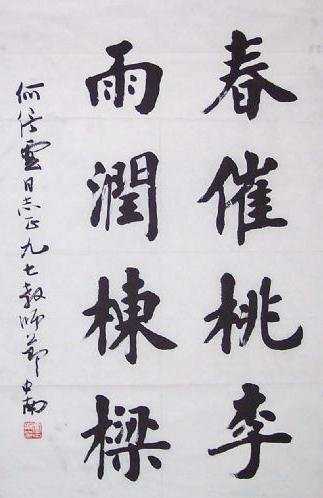 春催桃李
雨潤棟樑
何倍雲同志正 九七教師節 中南